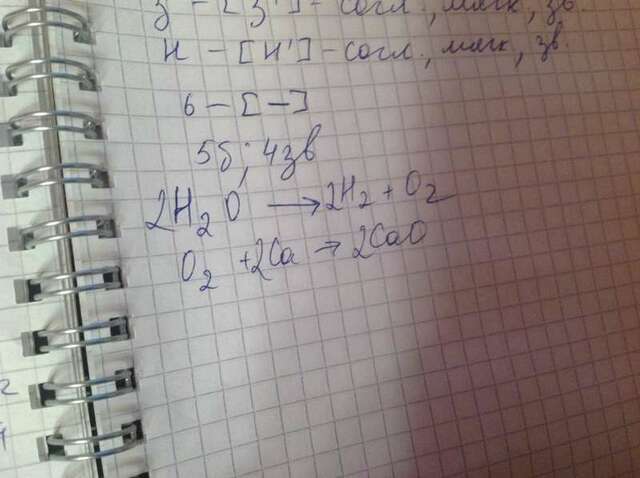 з - [з'] - согл., мягк, зв
н - [н'] - согл., мягк, зв.
ь - [-]
5б; 4зв
2H₂O → 2H₂ + O₂
O₂ + 2Ca → 2CaO